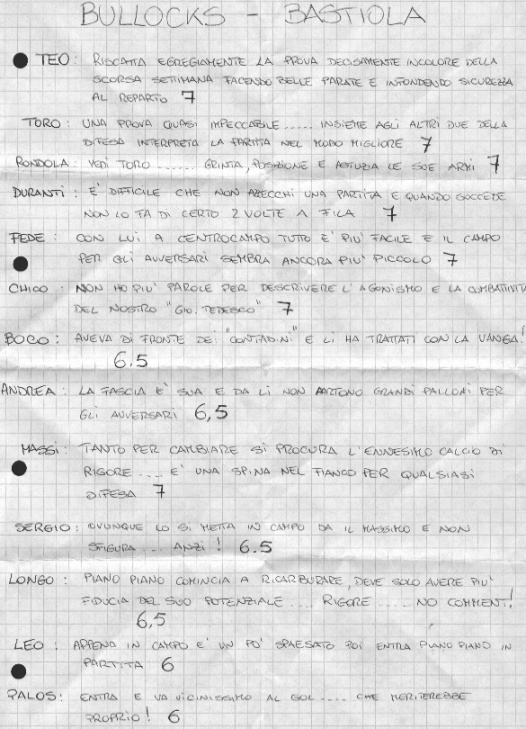 BULLOCKS - BASTIOLA
TEO: RISCATTA EGREGIAMENTE LA PROVA DECISAMENTE INCOLORE DELLA
SCORSA SETTIMANA FACENDO BELLE PARATE E INFONDENDO SICUREZZA
AL REPARTO 7
TORO: UNA PROVA QUASI IMPECCABILE ..... INSIEME AGLI ALTRI DUE DELLA
DIFESA INTERPRETA LA PARTITA NEL MODO MIGLIORE 7
RONDOLA: VEDI TORO ....... GRINTA, POSIZIONE E ASTUZIA LE SUE ARMI 7
DURANTI: E' DIFFICILE CHE NON AZECCHI UNA PARTITA E QUANDO SUCCEDE
NON LO FA DI CERTO 2 VOLTE A FILA 7
FEDE: CON LUI A CENTROCAMPO TUTTO E' PIU' FACILE E IL CAMPO
PER GLI AVVERSARI SEMBRA ANCORA PIU' PICCOLO 7
CHICO: NON HO PIU' PAROLE PER DESCRIVERE L'AGONISMO E LA COMBATTIVITA
DEL NOSTRO "GIO. TEDESCO" 7
BOCO: AVEVA DI FRONTE DEI "CONTADINI" E LI HA TRATTATI CON LA VANGA!
6.5
ANDREA: LA FASCIA E' SUA E DA LI NON PARTONO GRANDI PALLONI PER
GLI AVVERSARI 6,5
MASSI: TANTO PER CAMBIARE SI PROCURA L'ENNESIMO CALCIO DI
RIGORE .... E' UNA SPINA NEL FIANCO PER QUALSIASI
DIFESA 7
SERGIO: OVUNQUE LO SI METTA IN CAMPO DA IL MASSIMO E NON
SFIGURA ... ANZI! 6.5
LONGO: PIANO PIANO COMINCIA A RICARBURARE, DEVE SOLO AVERE PIU'
FIDUCIA DEL SUO POTENZIALE .... RIGORE ..... NO COMMENT!
6,5
LEO: APPENA IN CAMPO E' UN PO' SPAESATO POI ENTRA PIANO PIANO IN
PARTITA 6
PALOS: ENTRA E VA VICINISSIMO AL GOL .... CHE MERITEREBBE
PROPRIO! 6